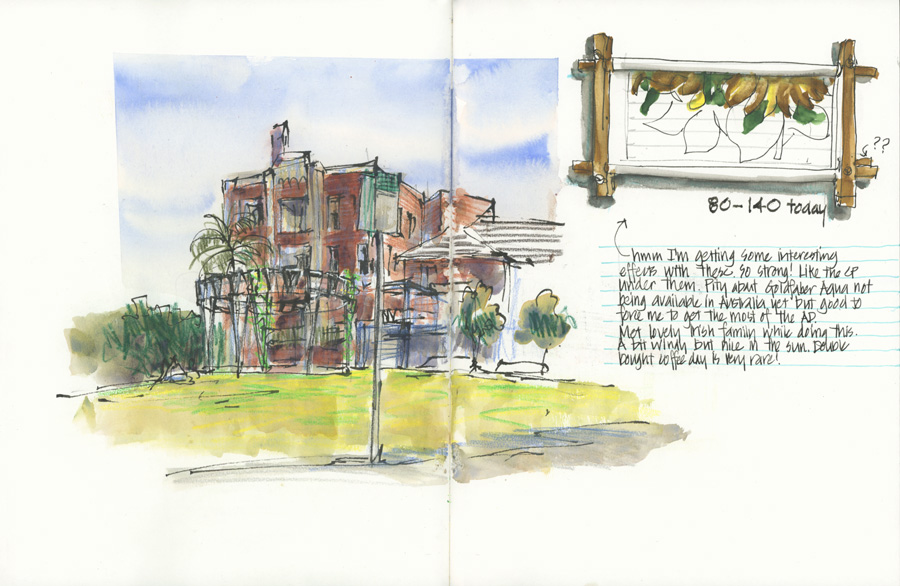 ??
80-140 today
hmm I'm getting some interesting
effects with these. So strong! Like the CP
under them. Pity about Goldfaber Aqua not
being available in Australia yet but good to
force me to get the most of the AD.
Met lovely Irish family while doing this.
A bit windy but nice in the sun. Double
bought coffee day is very rare!